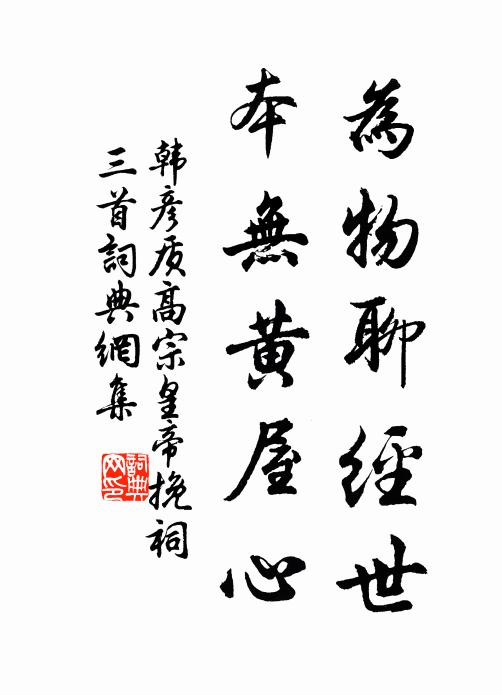 為物聊經世
本無黄屋心
韩彦质高宗皇帝挽祠
三首詞典網集
詞典
网印